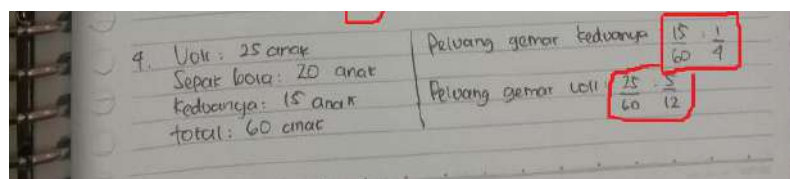 4. Voli : 25 anak
Sepak bola : 20 anak
Keduanya : 15 anak
total : 60 anak
Peluang gemar keduanya 15/60 : 1/4
Peluang gemar voli : 25/60 : 5/12